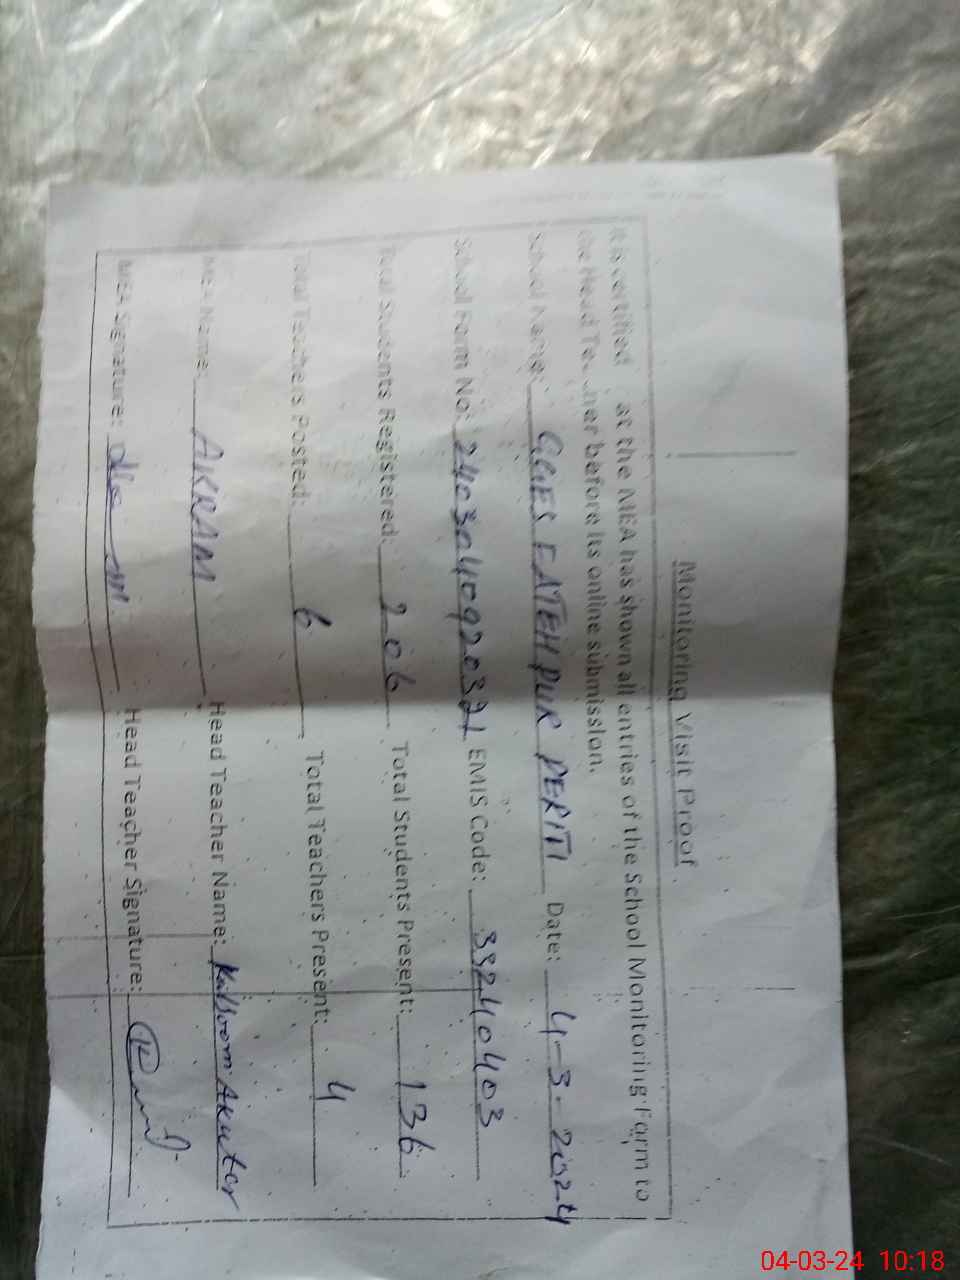 Monitoring Visit Proof
It is certified at the MEA has shown all entries of the School Monitoring Farm to
the Head Teacher before its online submission.
School Name: GGES FATEH PUR PERITI Date: 4-3-2024
School Farm No: 2403040920321 EMIS Code: 33240403
Total Students Registered: 206 Total Students Present: 136
Total Teachers Posted: 6 Total Teachers Present: 4
MEA Name: AKRAM Head Teacher Name: Kalsoom Akhter
MEA Signature: Head Teacher Signature:
04-03-24 10:18